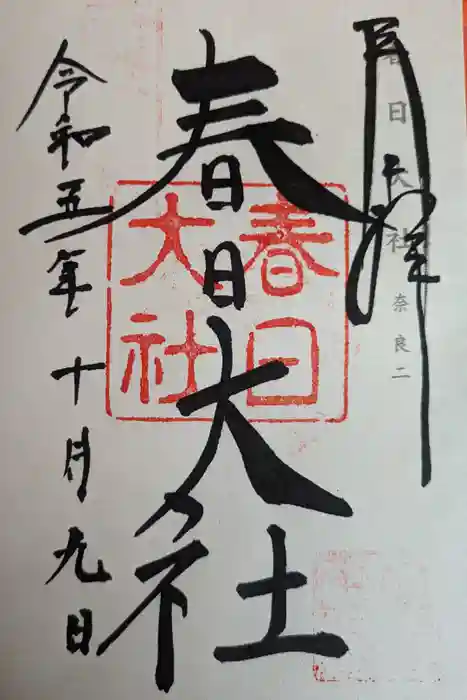 奉拝
春日大社
奈良二
春日大社
春日
大社
令和五年十月九日